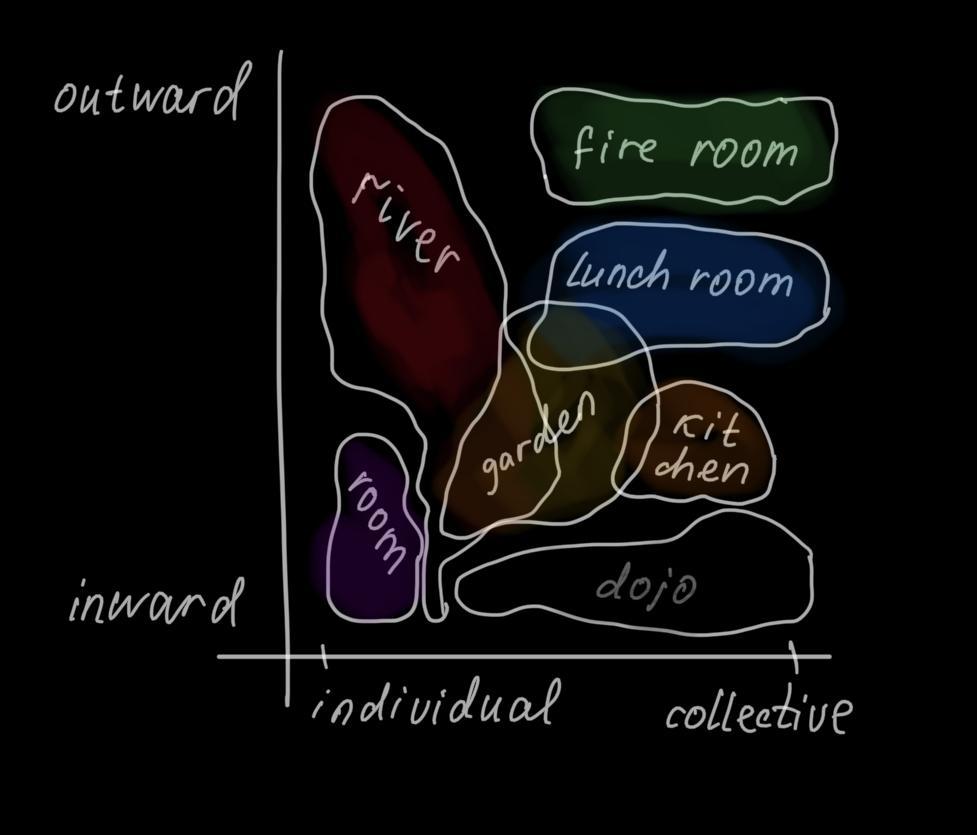 outward
fire room
river
Lunch room
garden
kit
chen
room
dojo
inward
individual
collective